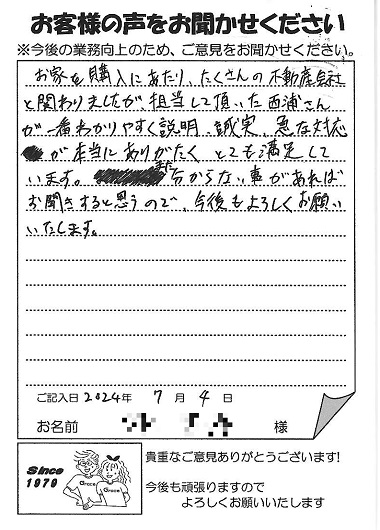 お客様の声をお聞かせください
※今後の業務向上のため、ご意見をお聞かせください。
お家を購入にあたり、たくさんの不動産会社
と関わりましたが担当して頂いた西浦さん
が一番わかりやすく説明、誠実、急な対応
が本当にありがたく とても満足して
います。 また分からない事があれば
お聞きすると思うので、今後もよろしくお願い
いたします。
ご記入日 2024年 7月 4日
お名前 様
Since
1979
Grace
Grace
貴重なご意見ありがとうございます!
今後も頑張りますので
よろしくお願いいたします